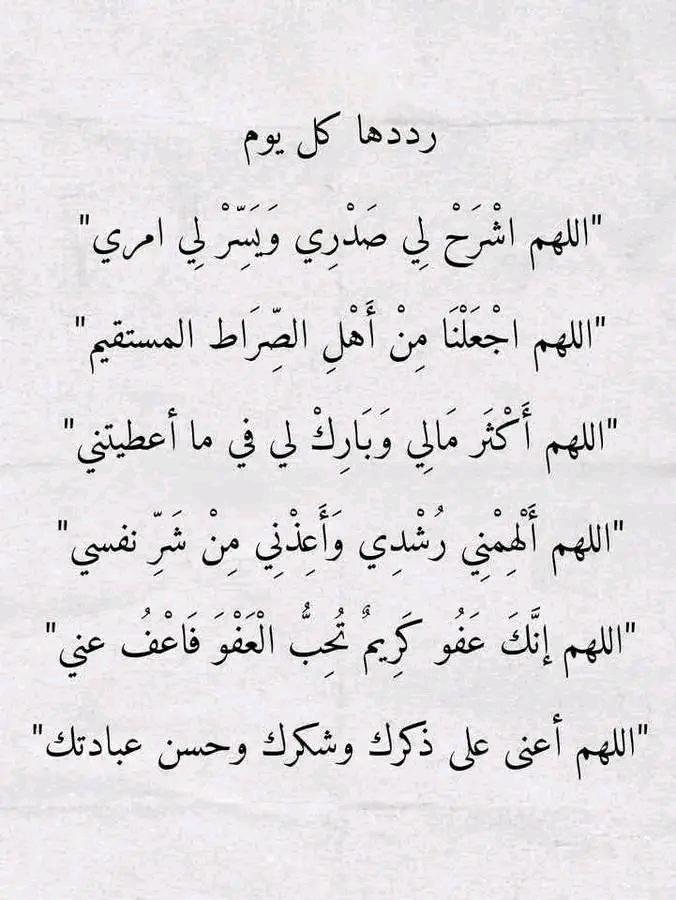 رددها كل يوم
"اللهم اشْرَحْ لِي صَدْرِي وَيَسِّرْ لِي امري"
"اللهم اجْعَلْنَا مِنْ أَهْلِ الصِّرَاط المستقيم"
"اللهم أَكْثَر مَالِي وَبَارِكْ لي في ما أعطيتني"
"اللهم أَلْهِمْنِي رُشْدِي وَأَعِذْنِي مِنْ شَرِّ نفسي"
"اللهم إنَّكَ عَفُو كَرِيمٌ تُحِبُّ الْعَفْوَ فَاعْفُ عني"
"اللهم أعنى على ذكرك وشكرك وحسن عبادتك"